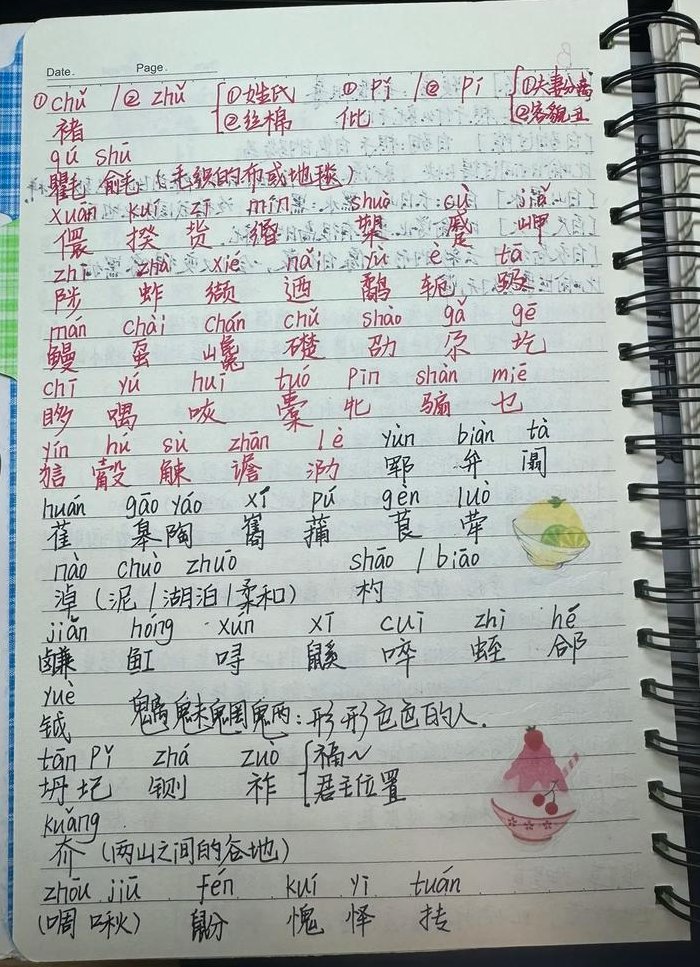 Date. Page.
① chǔ /② zhǔ {①姓氏 ②丝棉 ① pǐ /② pí {①夫妻分离 ②容貌丑
褚 仳
qú shū
氍毹 (毛织的布或地毯)
xuān kuí zī mín shuò cù jiǎ
儇 揆 赀 缗 槊 蹙 岬
zhì zhà xié nǎi yù è tā
陟 蚱 缬 迺 鹬 轭 趿
mán chài chán chǔ shào gǎ gē
鳗 虿 巉 礎 劭 尕 圪
chī yú huī tuó pìn shàn miē
眵 喁 咴 橐 牝 骟 乜
yín hú sù zhān lè yùn biàn tà
狺 觳 觫 谵 泐 郓 弁 阘
huán gāo yáo xī pú gèn luò
萑 皋陶 巂 蒱 茛 荦
nào chuò zhuō sháo / biāo
淖 (泥/湖泊/柔和) 杓
jiān hóng xún xī cuì zhì hé
鹻 魟 㖊 鼷 啐 蛭 郃
yuè
钺 魑魅魍魉: 形形色色的人.
tān pǐ zhá zuò {福~
坍圮 铡 祚 君王位置
kuǎng
夼 (两山之间的谷地)
zhōu jiū fén kuí yì tuán
(啁啾) 鼢 愧 怿 抟